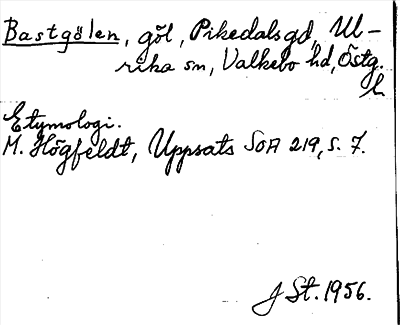 Bastgölen, göl, Pikedalsgd, Ul-
rika sn, Valkebo hd, Östg.
l.
Etymologi.
M. Högfeldt, Uppsats SOA 219, s. 7.
J St. 1956.